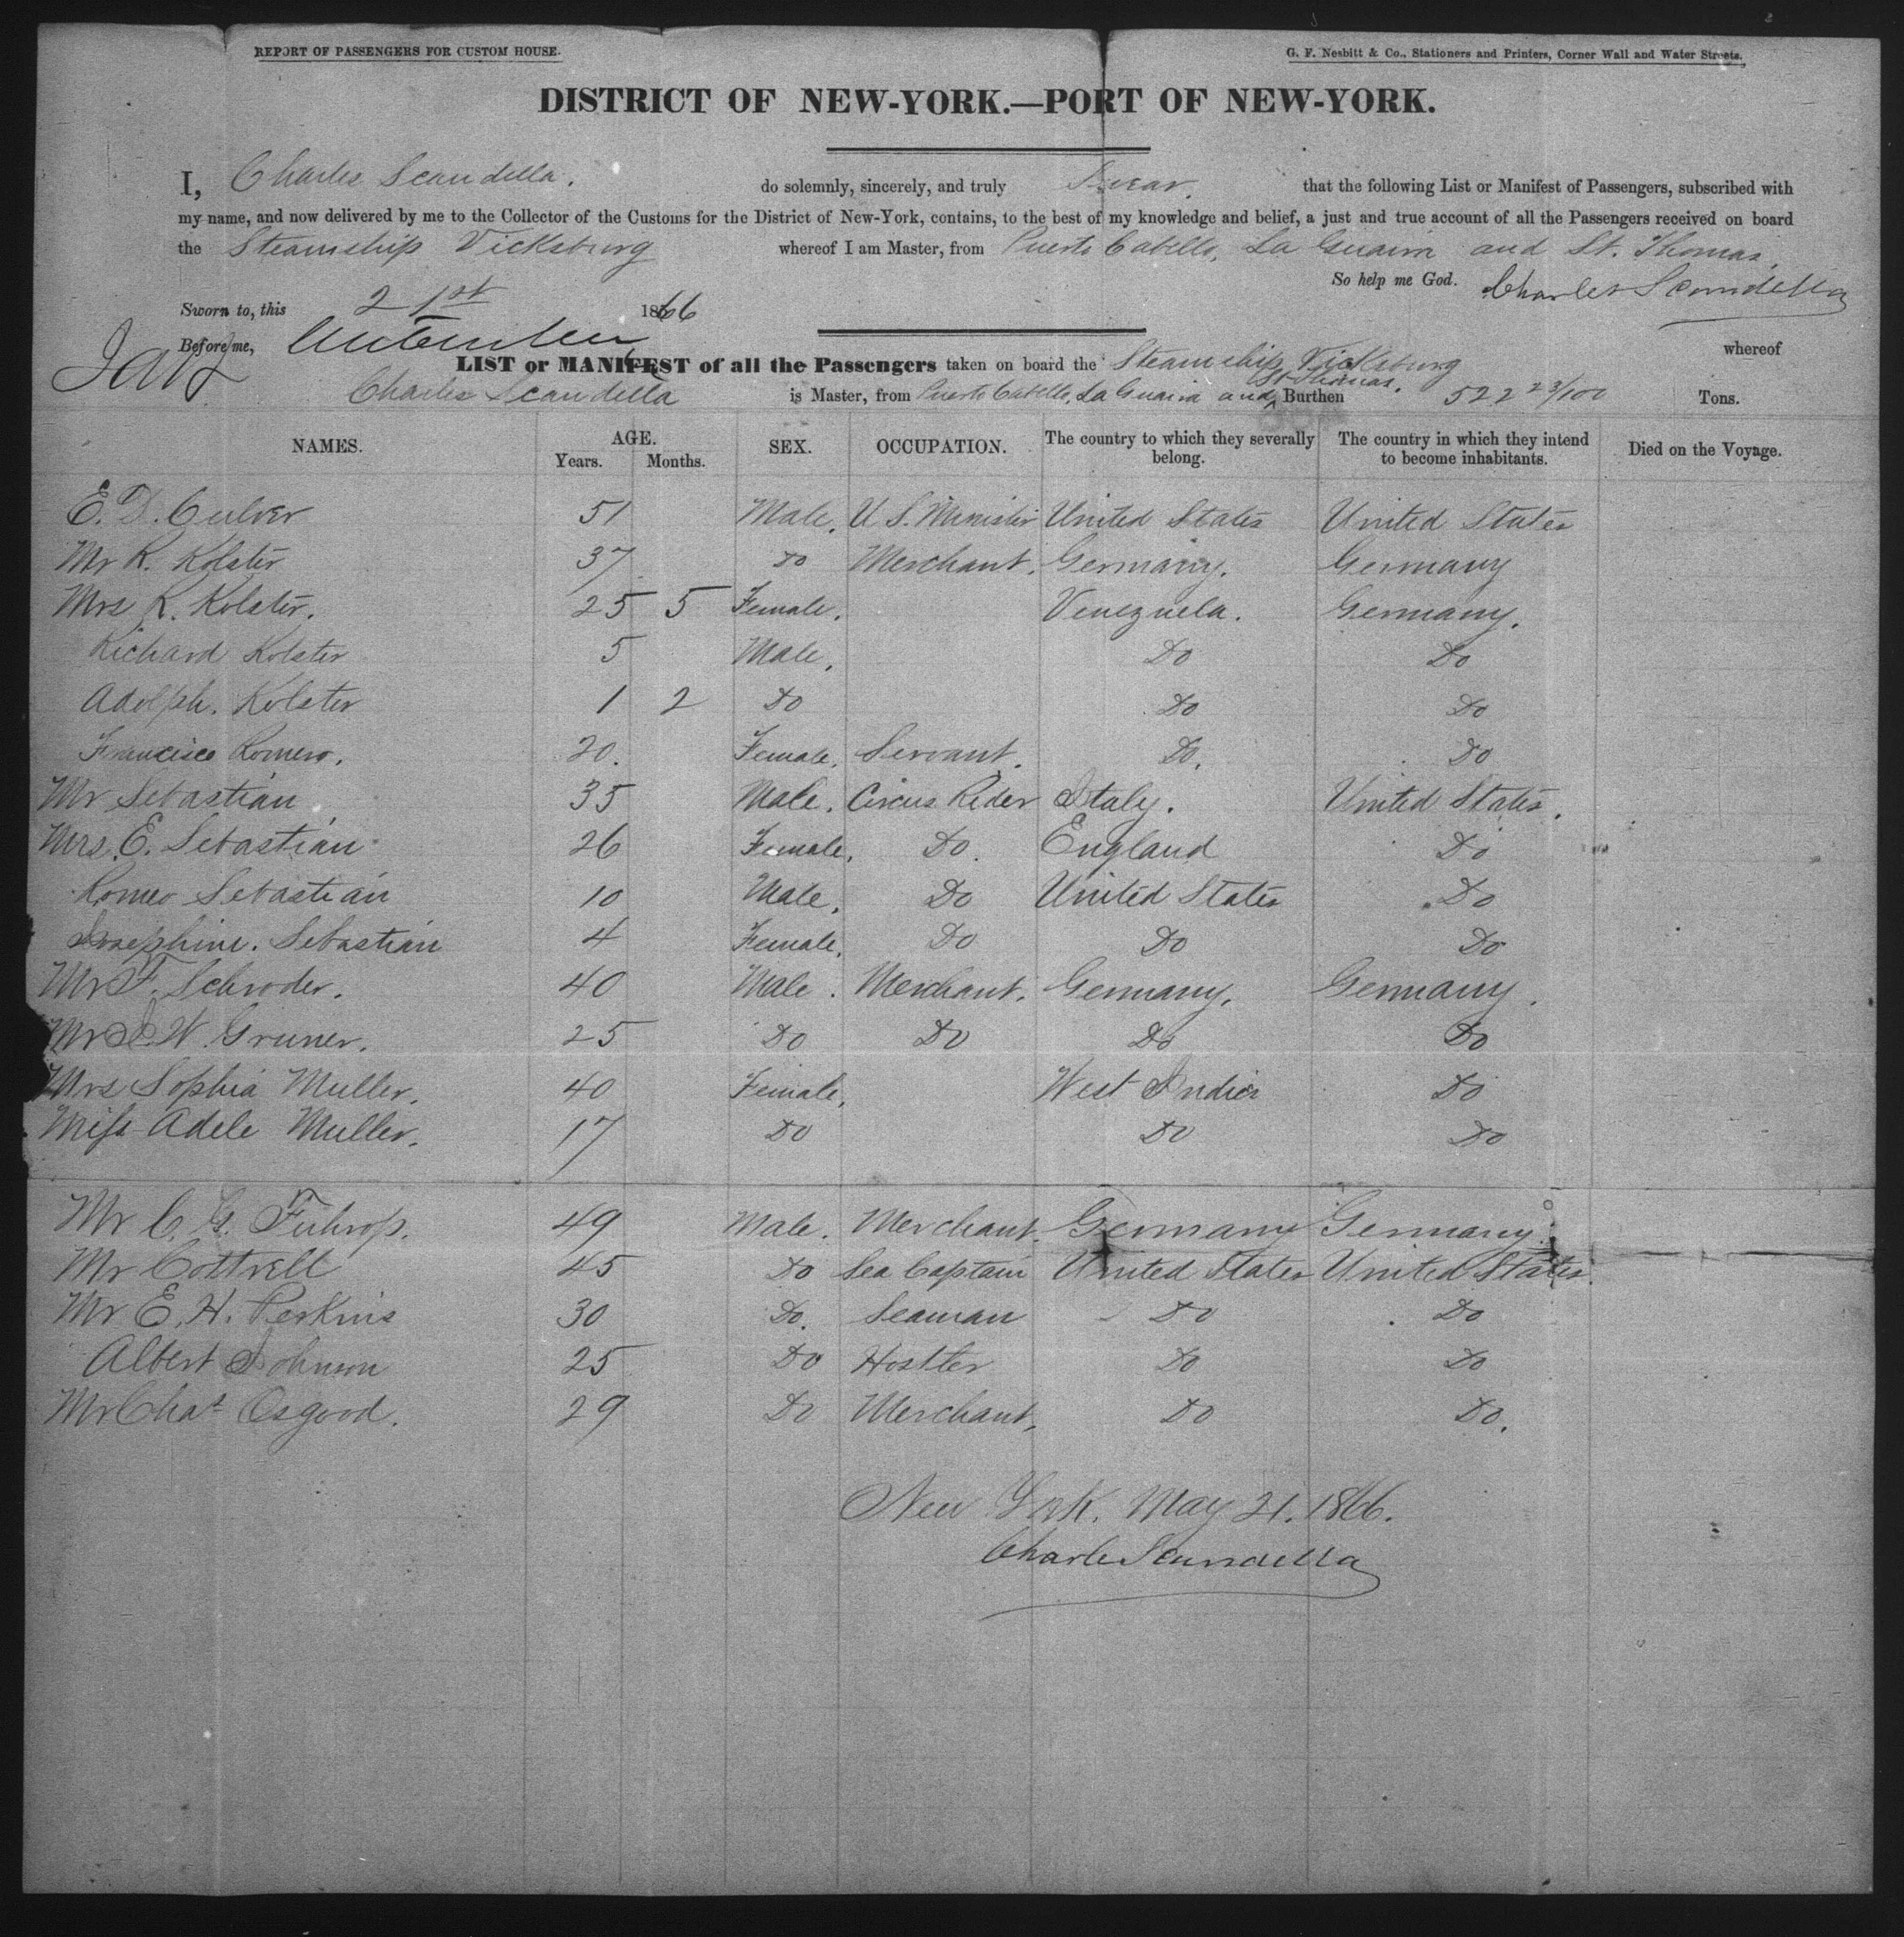 REPORT OF PASSENGERS FOR CUSTOM HOUSE. G. F. Nesbitt & Co., Stationers and Printers, Corner Wall and Water Streets.
DISTRICT OF NEW-YORK.—PORT OF NEW-YORK.
I, Charles Scandella. do solemnly, sincerely, and truly Swear, that the following List or Manifest of Passengers, subscribed with
my name, and now delivered by me to the Collector of the Customs for the District of New-York, contains, to the best of my knowledge and belief, a just and true account of all the Passengers received on board
the Steamship Vicksburg whereof I am Master, from Puerto Cabello, La Guaira and St. Thomas.
So help me God. Charles Scandella
Sworn to, this 21st 1866
Before me,
LIST or MANIFEST of all the Passengers taken on board the Steamship Vicksburg whereof
Charles Scandella is Master, from Puerto Cabello, La Guaira and St Thomas. Burthen 522 23/100 Tons.
NAMES. AGE. Years. Months. SEX. OCCUPATION. The country to which they severally belong. The country in which they intend to become inhabitants. Died on the Voyage.
E. D. Culver 51 Male. U S. Minister United States United States
Mr R. Kolster 37 Do Merchant. Germany. Germany
Mrs R. Kolster. 25 5 Female. Venezuela. Germany.
Richard Kolster 5 Male. Do Do
Adolph. Kolster 1 2 Do Do Do
Francisca Romero. 20. Female. Servant. Do. Do
Mr Sebastian 35 Male. Circus Rider Italy. United States.
Mrs. E. Sebastian 26 Female. Do. England Do
Romeo Sebastian 10 Male. Do United States Do
Josephine. Sebastian 4 Female. Do Do Do
Mr F. Schroder. 40 Male. Merchant. Germany. Germany.
Mr W. Gruner. 25 Do Do Do Do
Mrs Sophia Muller. 40 Female. West Indies Do
Miss Adele Muller. 17 Do Do Do
Mr C. G. 49 Male. Merchant. Germany Germany.
Mr Cottrell 45 Do Sea Captain United States United States.
Mr E. H. Perkins 30 Do. Seaman Do Do
Albert Johnson 25 Do Hostler Do Do
Mr Chas Osgood. 29 Do Merchant. Do Do.
New York. May 21. 1866.
Charles Scandella